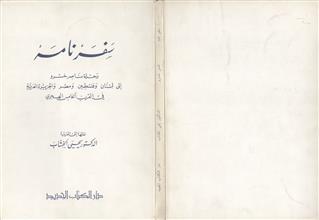 سفر نامه
رحلة ناصر خسرو
إلى لبنان وفلسطين ومصر والجزيرة العربية
في القرن الخامس الهجري
نقلها إلى العربية
الدكتور يحيى الخشاب
دار الكتاب الجديد